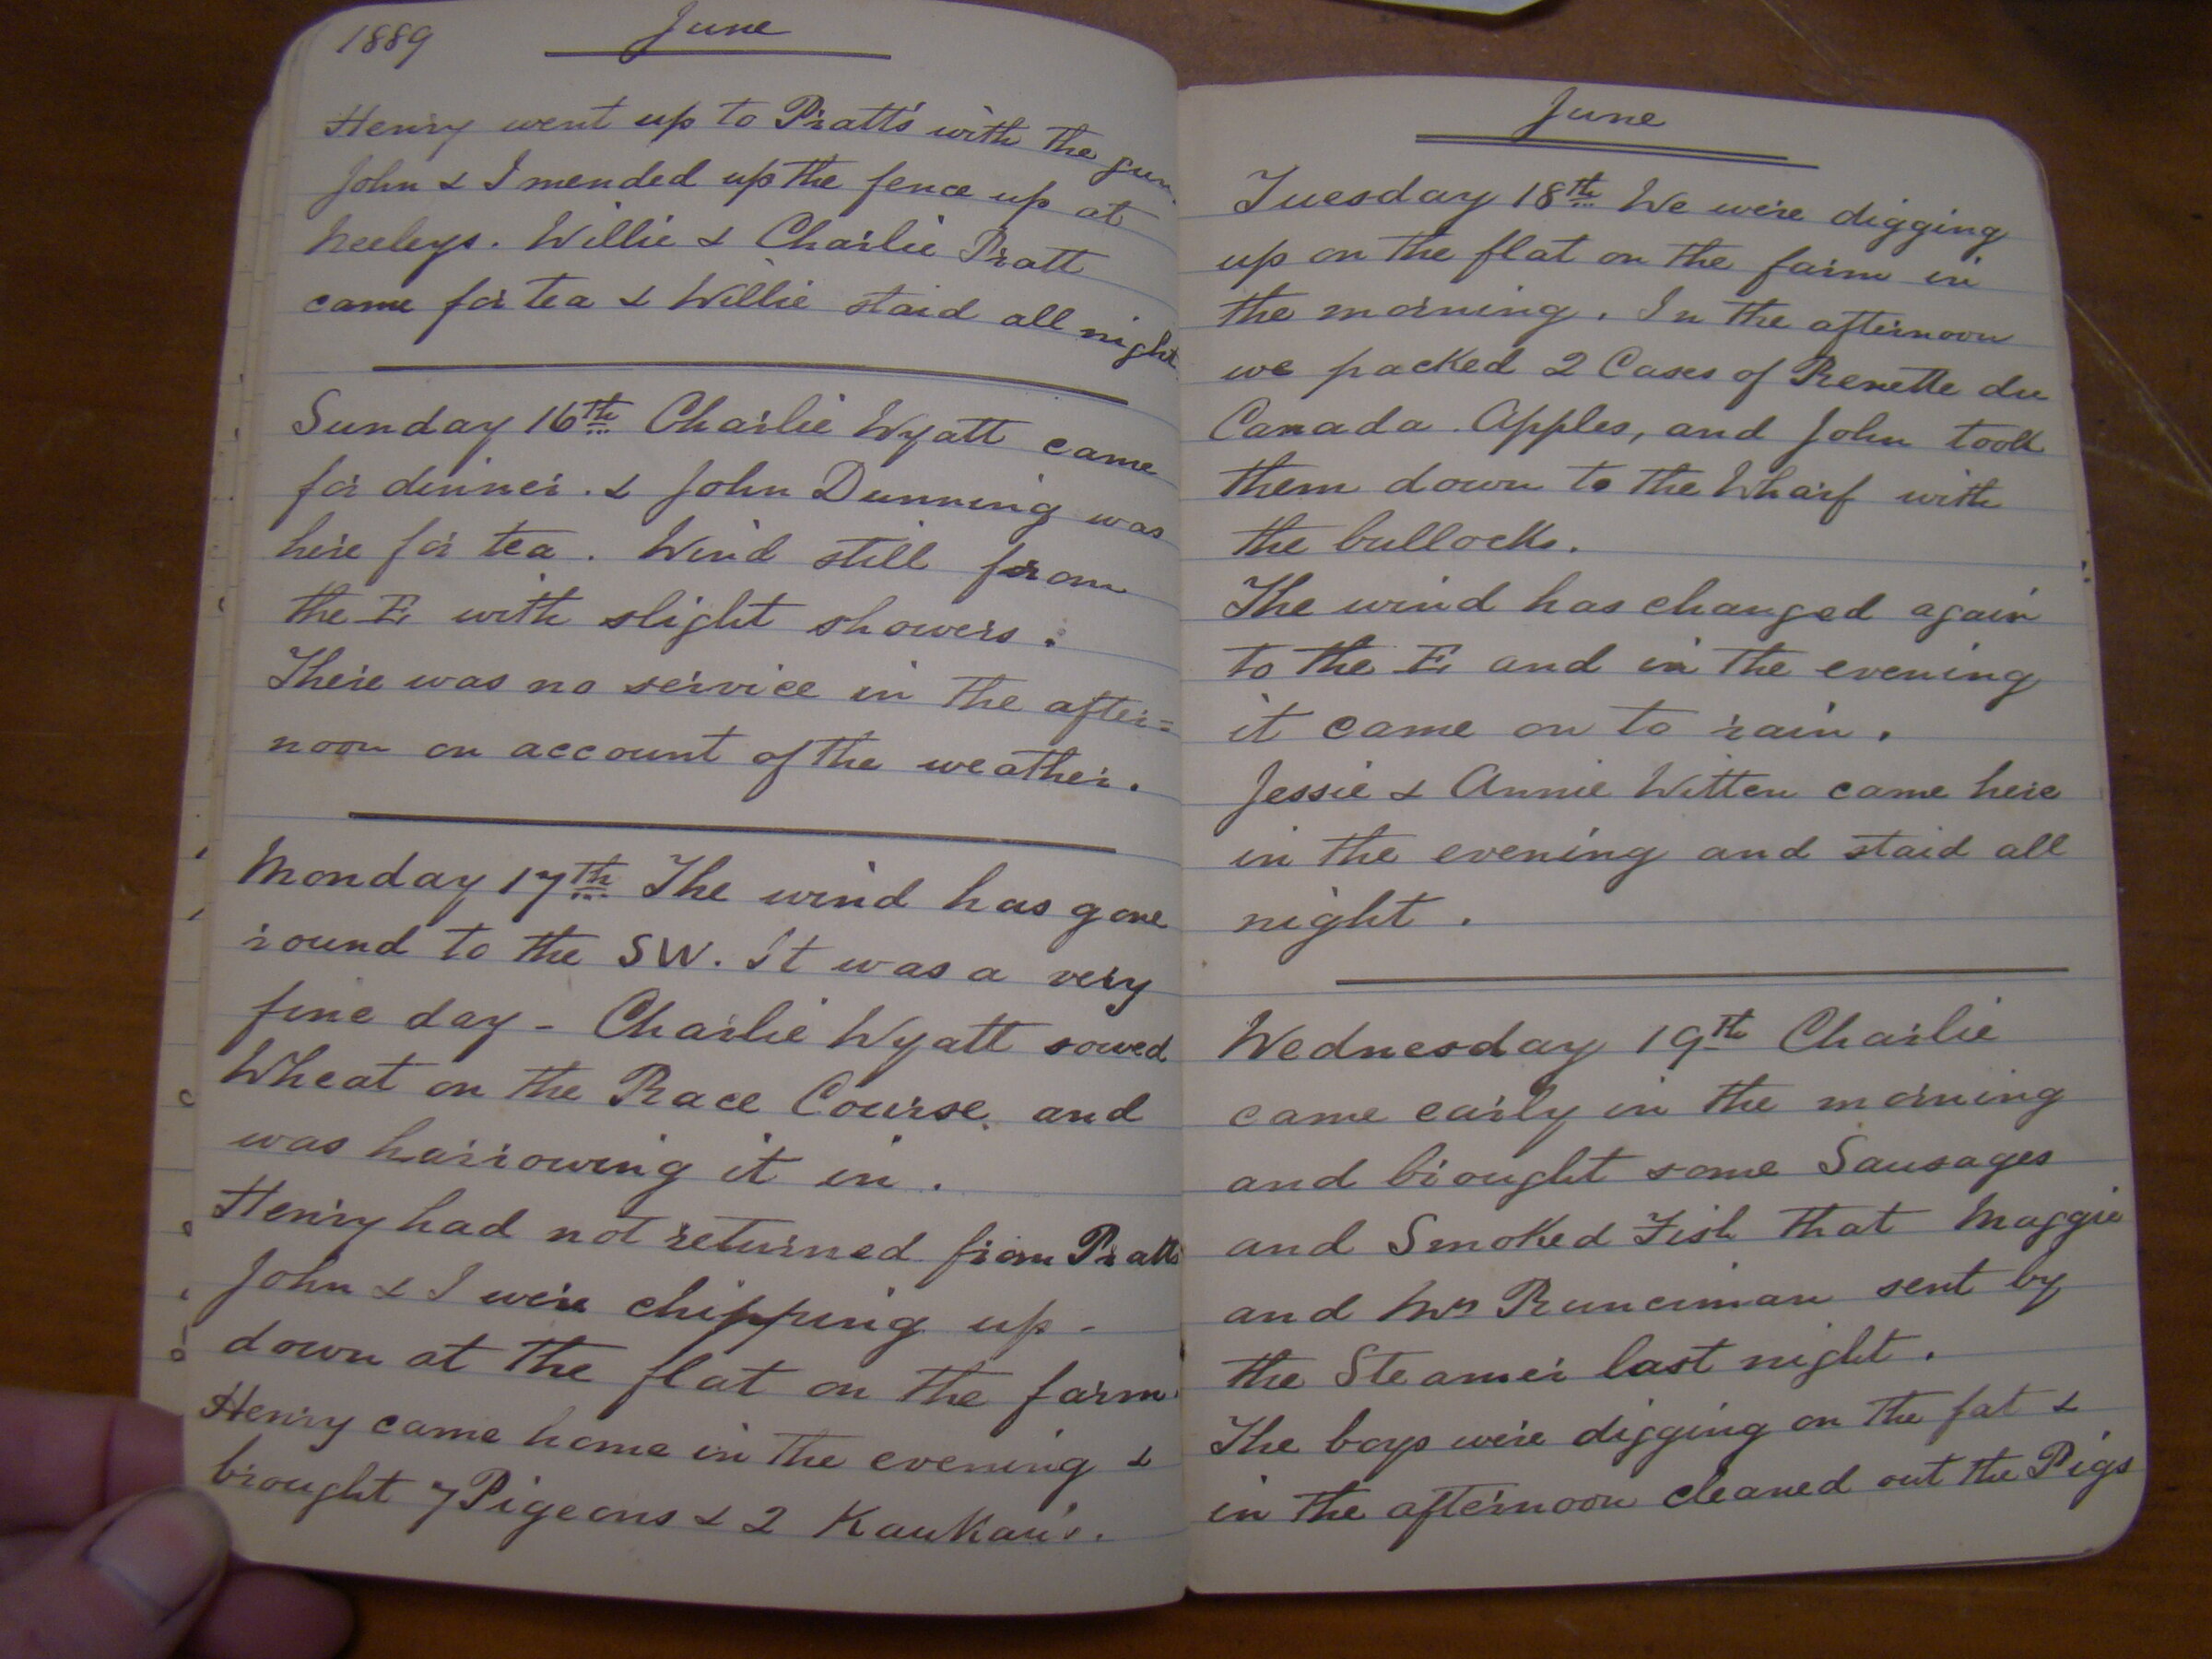 1889 June
Henry went up to Pratt's with the gun.
John & I mended up the fence up at
Neeleys. Willie & Charlie Pratt
came for tea & Willie staid all night.
Sunday 16th Charlie Wyatt came
for dinner. & John Dunning was
here for tea. Wind still from
the E with slight showers.
There was no service in the after=
noon on account of the weather.
Monday 17th The wind has gone
round to the SW. It was a very
fine day - Charlie Wyatt sowed
Wheat on the Race Course and
was harrowing it in.
Henry had not returned from Pratts
John & I were chipping up -
down at the flat on the farm.
Henry came home in the evening &
brought 7 Pigeons & 2 KauKau's.
June
Tuesday 18th We were digging
up on the flat on the farm in
the morning. In the afternoon
we packed 2 Cases of Renette du
Canada. Apples, and John took
them down to the Wharf with
the bullocks.
The wind has changed again
to the E and in the evening
it came on to rain.
Jessie & Annie Witten came here
in the evening and staid all
night.
Wednesday 19th Charlie
came early in the morning
and brought some Sausages
and Smoked Fish that Maggie
and Mrs Runciman sent by
the Steamer last night.
The boys were digging on the fat &
in the afternoon cleaned out the Pigs